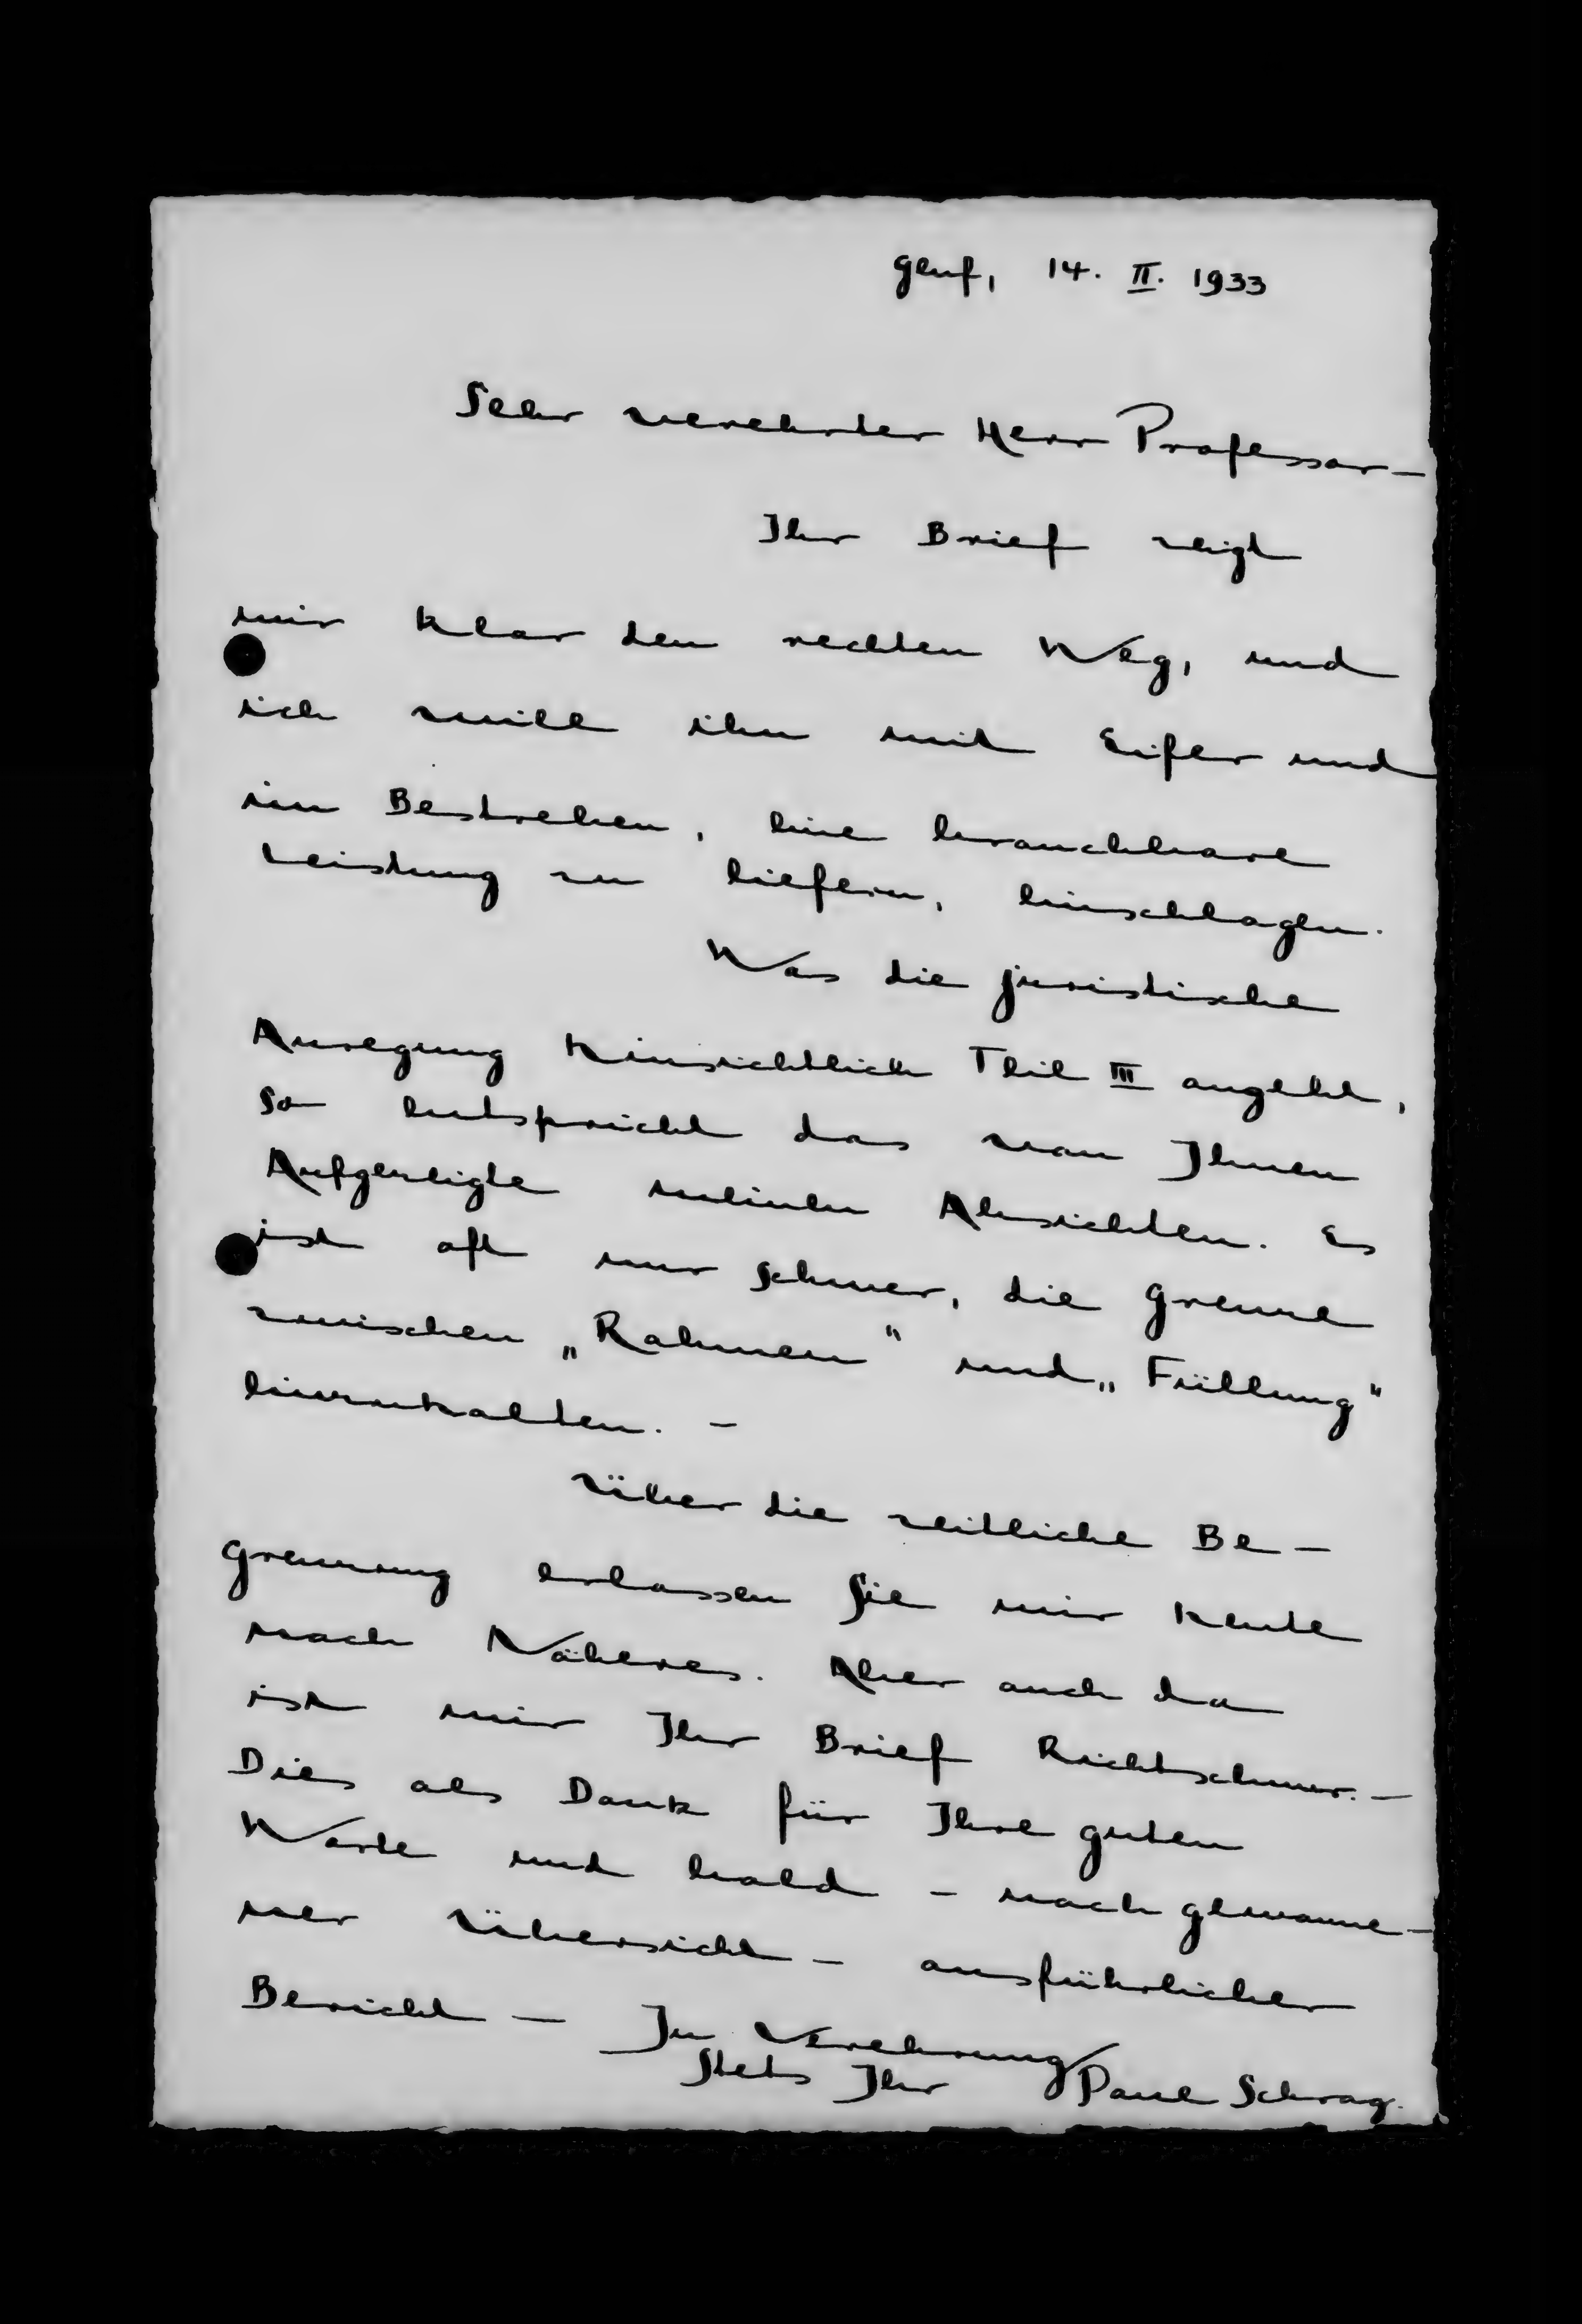 Genf, 14. II. 1933
Sehr verehrter Herr Professor –
Ihr Brief zeigt
mir klar den rechten Weg, und
ich will ihn mit Eifer und
im Bestreben, eine brauchbare
Leistung zu liefern, einschlagen.
Was die juristische
Anregung hinsichtlich Teil III angeht,
so entspricht das von Ihnen
Aufgezeigte meinen Absichten. Es
ist oft nur schwer, die Grenze
zwischen „Rahmen" und „Füllung"
einzuhalten. –
Über die zeitliche Be–
grenzung erlassen Sie mir heute
noch Näheres. Aber auch da
ist mir Ihr Brief Richtschnur. –
Dies als Dank für Ihre guten
Worte und bald – nach gewonne–
ner Übersicht – ausführlicher
Bericht – In Verehrung
Stets Ihr Paul Schrag.